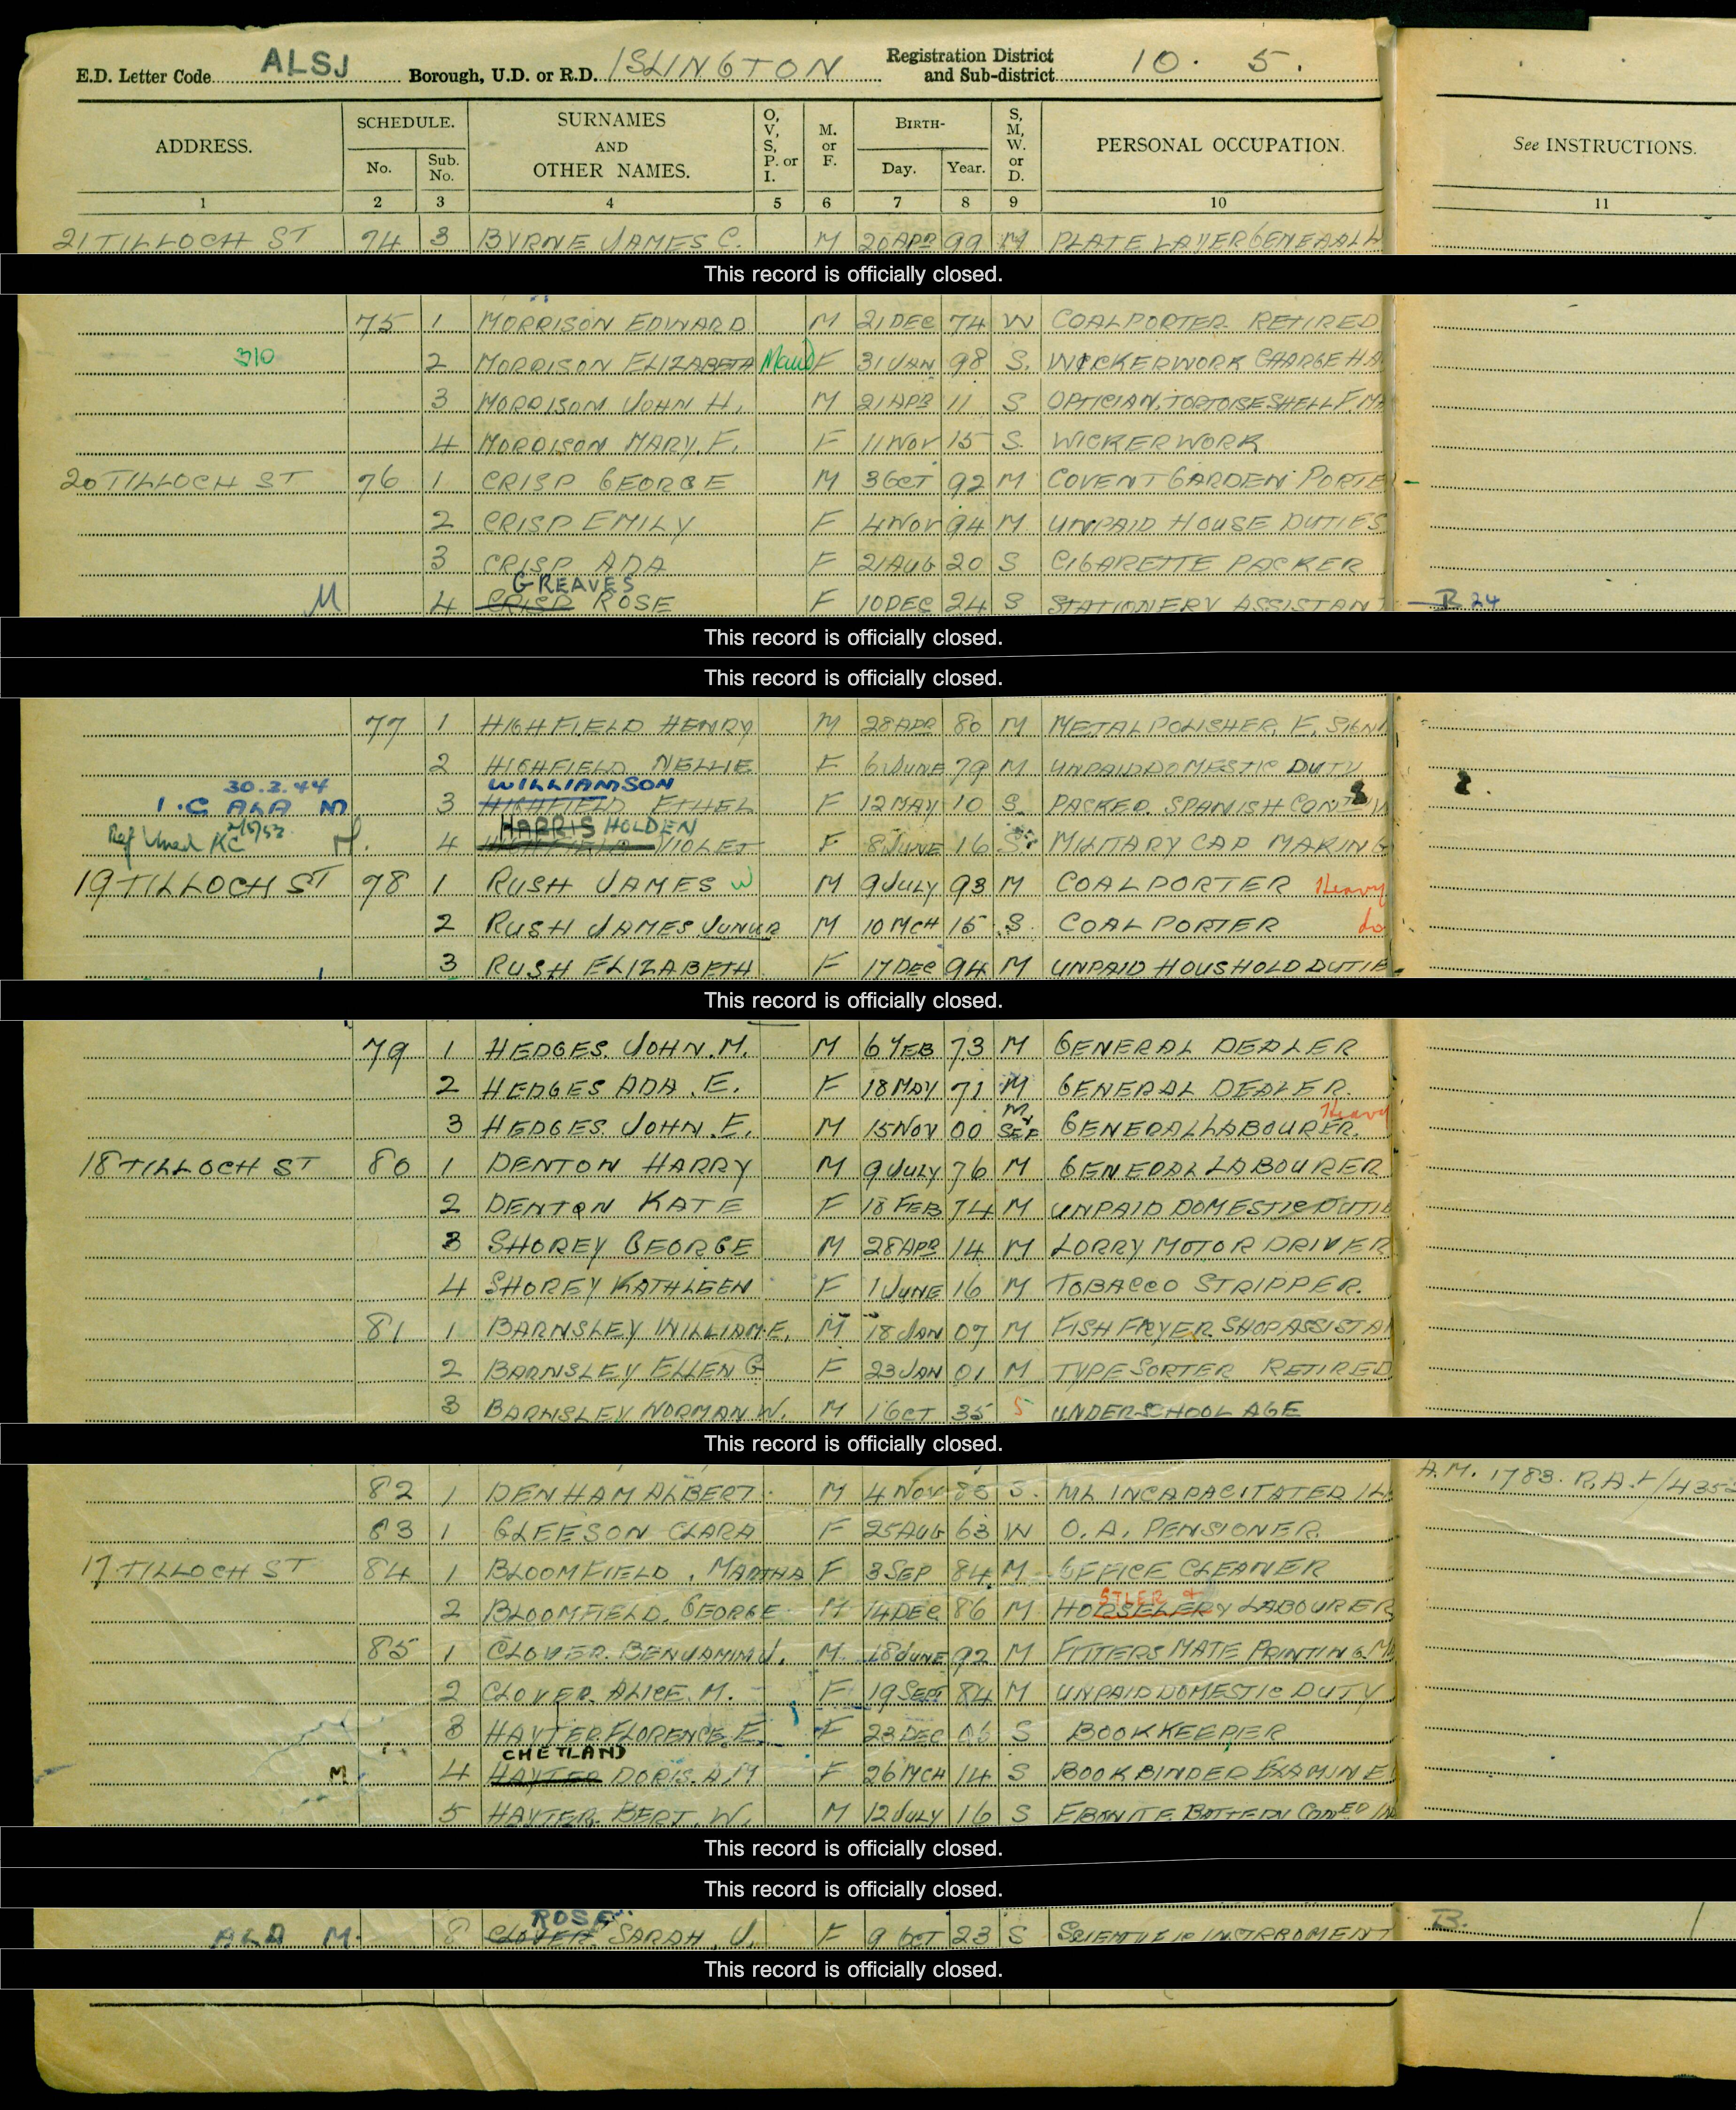 E.D. Letter Code ALSJ Borough, U.D. or R.D. ISLINGTON Registration District and Sub-district 10. 5.
ADDRESS. SCHEDULE. No. Sub. No. SURNAMES AND OTHER NAMES. O, V, S, P. or I. M. or F. BIRTH- Day. Year. S, M, W. or D. PERSONAL OCCUPATION. See INSTRUCTIONS.
1 2 3 4 5 6 7 8 9 10 11
21 TILLOCH ST 74 3 BYRNE JAMES C. M 20 APR 99 M PLATE LAYER GENERAL L
This record is officially closed.
75 1 MORRISON EDWARD M 21 DEC 74 W COAL PORTER RETIRED
310 2 MORRISON ELIZABETH Maud F 31 JAN 98 S. WICKERWORK CHARGE HA
3 MORRISON JOHN H. M 21 APR 11 S OPTICIAN, TORTOISESHELL F MA
4 MORRISON MARY. F. F 11 NOV 15 S. WICKERWORK
20 TILLOCH ST 76 1 CRISP GEORGE M 3 OCT 92 M COVENT GARDEN PORTE
2 CRISP EMILY F 4 NOV 94 M. UNPAID HOUSE DUTIES
3 CRISP ADA F 21 AUG 20 S CIGARETTE PACKER
GREAVES
M 4 CRISP ROSE F 10 DEC 24 S STATIONERY ASSISTANT B 24
This record is officially closed.
This record is officially closed.
77 1 HIGHFIELD HENRY M 28 APR 80 M METAL POLISHER, F. SIGN
2 HIGHFIELD NELLIE F 6 JUNE 79 M UNPAID DOMESTIC DUTY
30.3.44 WILLIAMSON
1.C ALA M 3 HIGHFIELD ETHEL F 12 MAY 10 S PACKER. SPANISH
HARRIS HOLDEN
M. 4 HIGHFIELD VIOLET F 8 JUNE 16 S MILITARY CAP MAKING
19 TILLOCH ST 78 1 RUSH JAMES W M 9 JULY 93 M COAL PORTER Heavy
2 RUSH JAMES JUNIUR M 10 MCH 15 S. COAL PORTER do
3 RUSH ELIZABETH F 17 DEC 94 M UNPAID HOUSHOLD DUTIE
This record is officially closed.
79 1 HEDGES. JOHN. M. M 6 FEB 73 M GENERAL DEALER
2 HEDGES ADA. E. F 18 MAY 71 M GENERAL DEALER.
M Heavy
3 HEDGES. JOHN. E. M 15 NOV 00 SEP GENERAL LABOURER.
18 TILLOCH ST 80 1 DENTON HARRY M 9 JULY 76 M GENERAL LABOURER
2 DENTON KATE F 18 FEB 74 M UNPAID DOMESTIC DUTIE
3 SHOREY GEORGE M 28 APR 14 M LORRY MOTOR DRIVER
4 SHOREY KATHLEEN F 1 JUNE 16 M TOBACCO STRIPPER.
81 1 BARNSLEY WILLIAM. E. M 18 JAN 07 M FISH FRYER. SHOP ASSISTAN
2 BARNSLEY ELLEN G F 23 JAN 01 M TYPE SORTER RETIRED
3 BARNSLEY NORMAN W. M 1 OCT 35 S UNDER SCHOOL AGE
This record is officially closed.
A.M. 1783.
82 1 DENHAM ALBERT. M 4 NOV 85 S. INCAPACITATED
83 1 GLEESON CLARA F 25 AUG 63 W O. A. PENSIONER.
17 TILLOCH ST 84 1 BLOOMFIELD, MARTHA F 3 SEP 84 M. OFFICE CLEANER
STLER +
2 BLOOMFIELD. GEORGE M 14 DEC 86 M. HORSELERY LABOURER
85 1 CLOVER. BENJAMIN J. M. 18 JUNE 92 M FITTERS MATE PRINTING. MA
2 CLOVER. ALICE. M. F 19 SEPT 84 M UNPAID DOMESTIC DUTY
3 HAYTER FLORENCE. E. F 23 DEC 06 S BOOK KEEPER
CHETLAND
M 4 HAYTER DORIS. A. M F 26 MCH 14 S BOOKBINDER EXAMINE
5 HAYTER. BERT. W. M 12 JULY 16 S EBONITE. BATTERY
This record is officially closed.
This record is officially closed.
ROSE
ALA M. 8 CLOVER SARAH. J. F 9 OCT 23 S SCIENTIFIC INSTRROMENT B.
This record is officially closed.